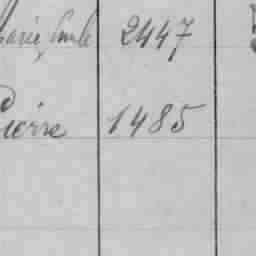 Marie Emile 2447
Pierre 1485